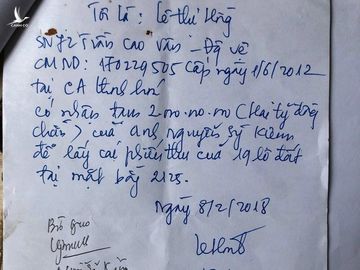 Tôi là: Lê thị Hồng
SN 72 Trần Cao Vân - Đội về
CMND: 170229505 cấp ngày 1/6/2012
tại CA thanh hoá
có nhận tiền 2.000.000.000 (hai tỷ đồng
chẵn) của anh nguyễn sỹ Kiêm
để lấy cái phiếu thu của 19 lô đất
tại mặt bằng 2125.
ngày 8/2/2018
Bên giao